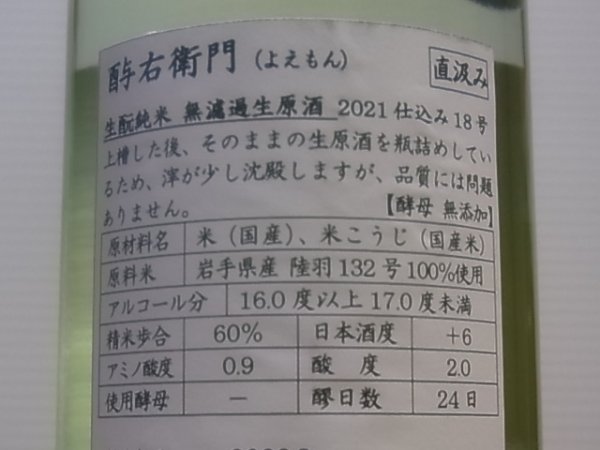 酉与右衛門（よえもん） 直汲み
生酛純米 無濾過生原酒 2021仕込み18号
上槽した後、そのままの生原酒を瓶詰めしてい
るため、滓が少し沈殿しますが、品質には問題
ありません。 【酵母 無添加】
原材料名 米（国産）、米こうじ（国産米）
原料米 岩手県産 陸羽132号100%使用
アルコール分 16.0度以上17.0度未満
精米歩合 60% 日本酒度 +6
アミノ酸度 0.9 酸度 2.0
使用酵母 － 醪日数 24日